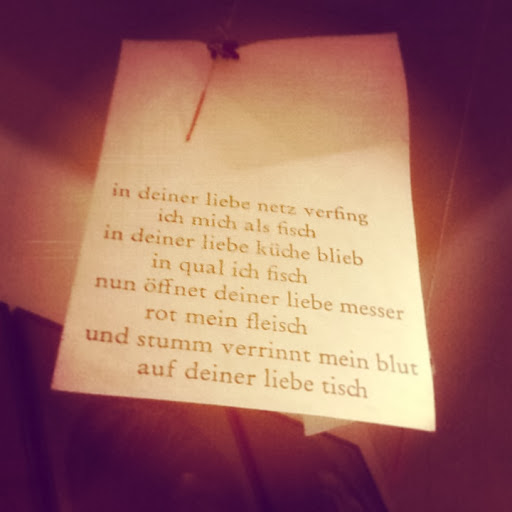 in deiner liebe netz verfing
ich mich als fisch
in deiner liebe küche blieb
in qual ich fisch
nun öffnet deiner liebe messer
rot mein fleisch
und stumm verrinnt mein blut
auf deiner liebe tisch